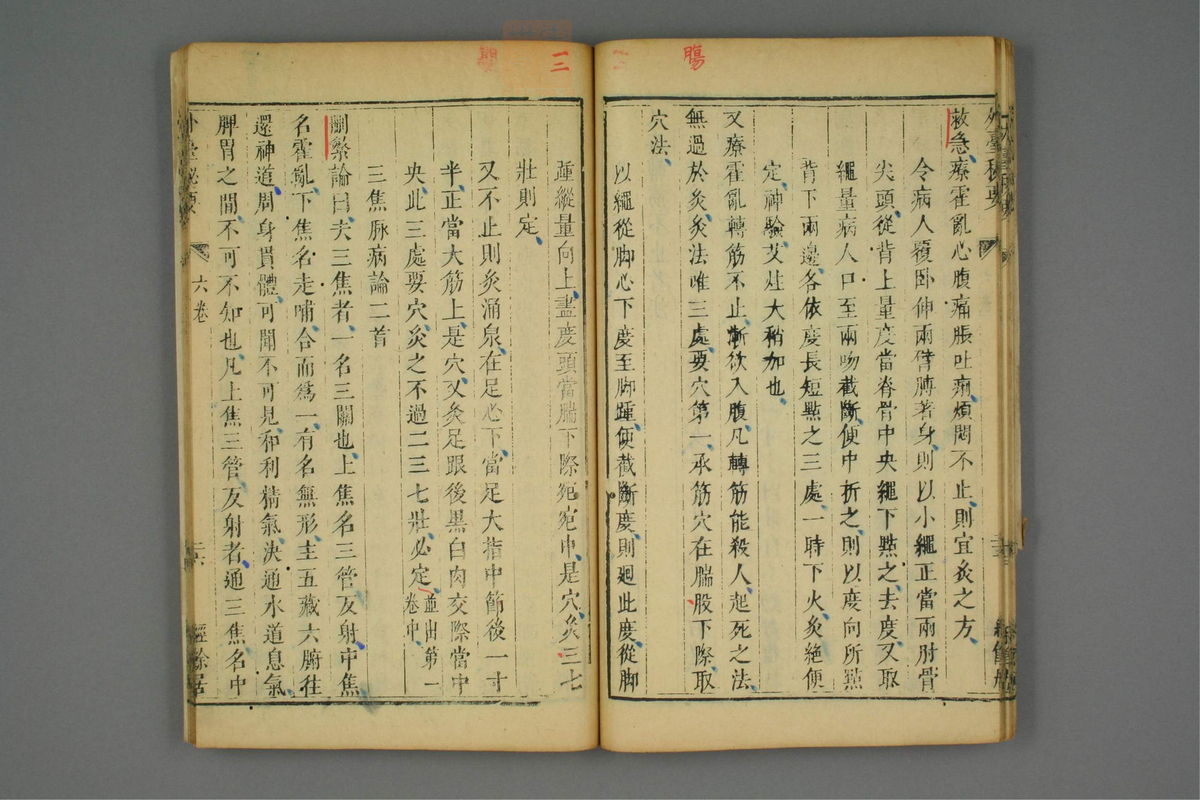 腸
三
外臺秘要
救急療霍亂心腹痛脹吐痢煩悶不止則宜灸之方
令病人覆臥伸兩臂膊著身則以小繩正當兩肘骨
尖頭從背上量度當脊骨中央繩下㸃之去度又取
繩量病人口至兩吻截斷便中折之則以度向所㸃
背下兩邊各依度長短㸃之三處一時下火灸絶便
定神驗艾炷大稍加也
又療霍亂轉筋不止漸欲入腹凡轉筋能殺人起死之法
無過於灸灸法唯三處要穴第一承筋穴在腨股下際取
穴法
以繩從脚心下度至脚踵便截斷度則廻此度從脚
踵縱量向上盡度頭當腨下際宛宛中是穴灸三七
壯則定
又不止則灸涌泉在足心下當足大指中節後一寸
半正當大筋上是穴又灸足跟後黒白肉交際當中
央此三處要穴灸之不過二三七壯必定並出第一卷中
三焦脉病論二首
刪繁論曰夫三焦者一名三關也上焦名三管反射中焦
名霍亂下焦名走哺合而爲一有名無形主五藏六腑往
還神道周身貫體可聞不可見和利精氣決通水道息氣
脾胃之間不可不知也凡上焦三管反射者通三焦名中
外臺秘要
六卷
二六
經餘居